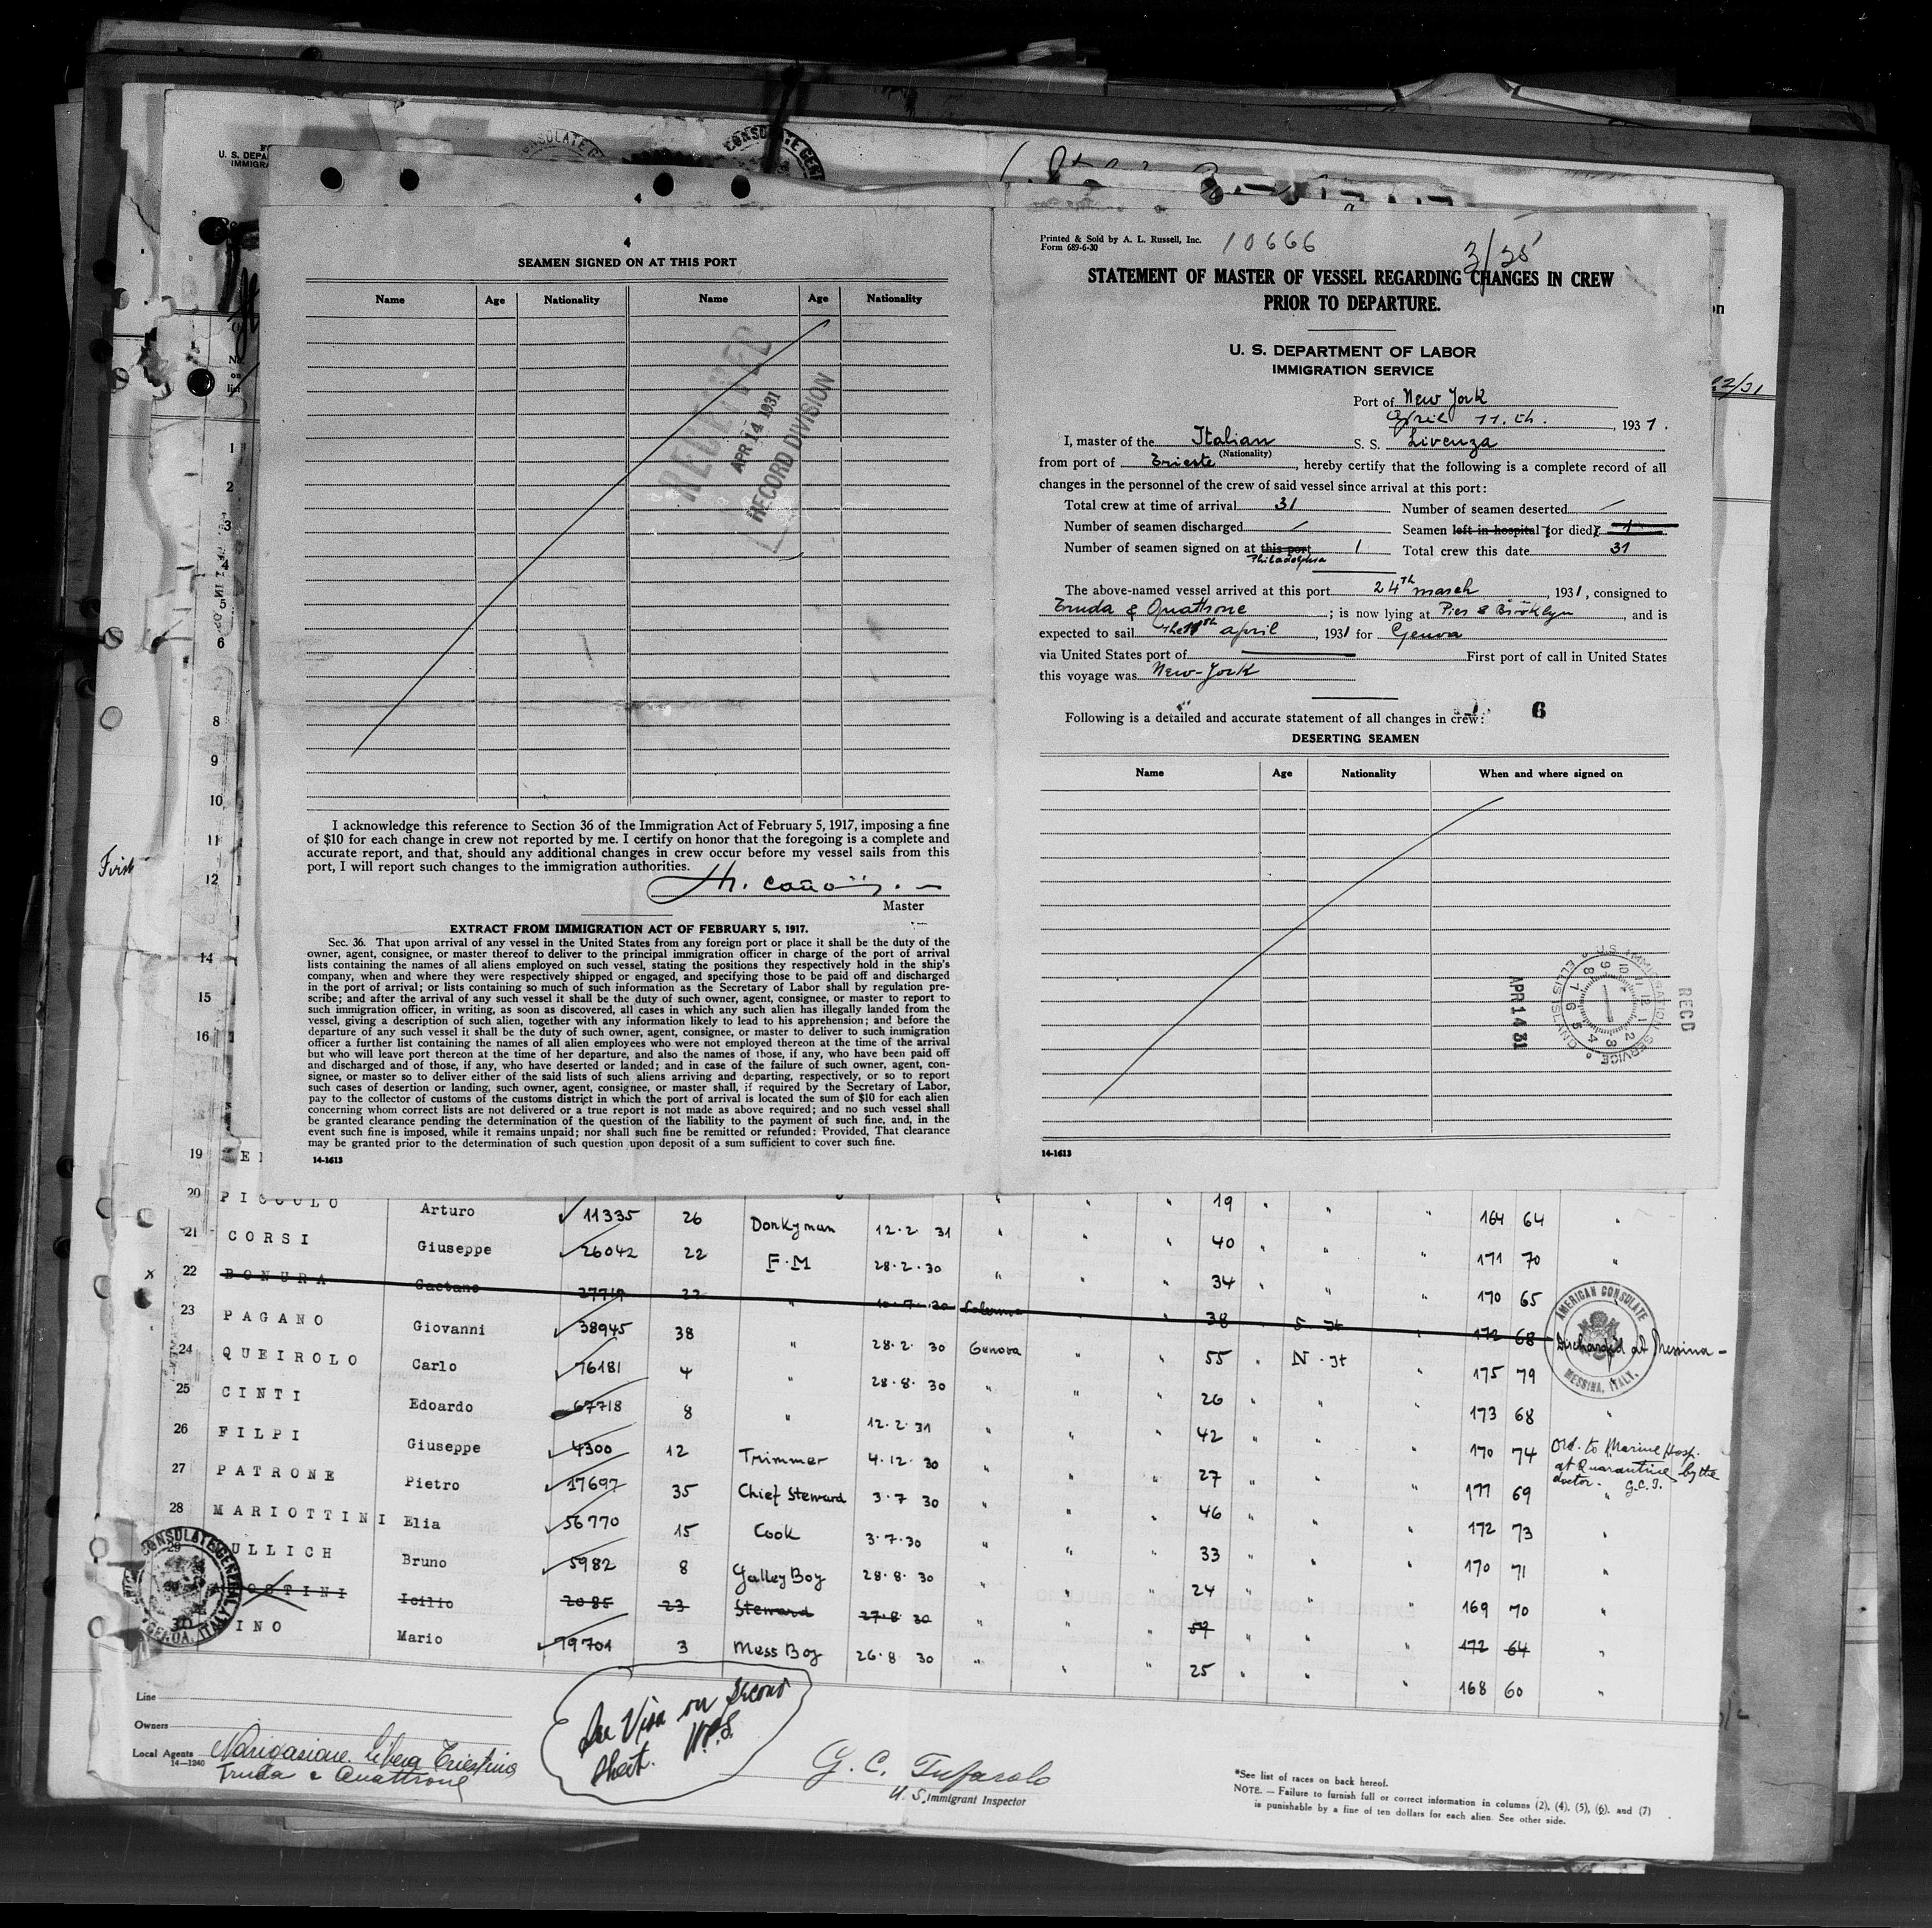 U. S. DEPA
IMMIGRA
CONSULATE GE
CONSULATE GENE
4
4
SEAMEN SIGNED ON AT THIS PORT
Name Age Nationality Name Age Nationality
RECEIVED
APR 14 1931
RECORD DIVISION
I acknowledge this reference to Section 36 of the Immigration Act of February 5, 1917, imposing a fine
of $10 for each change in crew not reported by me. I certify on honor that the foregoing is a complete and
accurate report, and that, should any additional changes in crew occur before my vessel sails from this
port, I will report such changes to the immigration authorities.
Master
EXTRACT FROM IMMIGRATION ACT OF FEBRUARY 5, 1917.
Sec. 36. That upon arrival of any vessel in the United States from any foreign port or place it shall be the duty of the
owner, agent, consignee, or master thereof to deliver to the principal immigration officer in charge of the port of arrival
lists containing the names of all aliens employed on such vessel, stating the positions they respectively hold in the ship's
company, when and where they were respectively shipped or engaged, and specifying those to be paid off and discharged
in the port of arrival; or lists containing so much of such information as the Secretary of Labor shall by regulation pre-
scribe; and after the arrival of any such vessel it shall be the duty of such owner, agent, consignee, or master to report to
such immigration officer, in writing, as soon as discovered, all cases in which any such alien has illegally landed from the
vessel, giving a description of such alien, together with any information likely to lead to his apprehension; and before the
departure of any such vessel it shall be the duty of such owner, agent, consignee, or master to deliver to such immigration
officer a further list containing the names of all alien employees who were not employed thereon at the time of the arrival
but who will leave port thereon at the time of her departure, and also the names of those, if any, who have been paid off
and discharged and of those, if any, who have deserted or landed; and in case of the failure of such owner, agent, con-
signee, or master so to deliver either of the said lists of such aliens arriving and departing, respectively, or so to report
such cases of desertion or landing, such owner, agent, consignee, or master shall, if required by the Secretary of Labor,
pay to the collector of customs of the customs district in which the port of arrival is located the sum of $10 for each alien
concerning whom correct lists are not delivered or a true report is not made as above required; and no such vessel shall
be granted clearance pending the determination of the question of the liability to the payment of such fine, and, in the
event such fine is imposed, while it remains unpaid; nor shall such fine be remitted or refunded: Provided, That clearance
may be granted prior to the determination of such question upon deposit of a sum sufficient to cover such fine.
14-1613
Printed & Sold by A. L. Russell, Inc.
Form 689-6-30
10666
STATEMENT OF MASTER OF VESSEL REGARDING CHANGES IN CREW
PRIOR TO DEPARTURE.
U. S. DEPARTMENT OF LABOR
IMMIGRATION SERVICE
Port of New York
April 11.th. , 1931.
I, master of the Italian S. S. Livenza
(Nationality)
from port of Trieste, hereby certify that the following is a complete record of all
changes in the personnel of the crew of said vessel since arrival at this port:
Total crew at time of arrival 31 Number of seamen deserted /
Number of seamen discharged / Seamen left in hospital (or died) 1
Number of seamen signed on at this port 1 Total crew this date 31
Philadelphia
The above-named vessel arrived at this port 24th march, 1931, consigned to
Truda & Quattrone; is now lying at Pier 8 Brooklyn, and is
expected to sail the 11th april, 1931 for Genova
via United States port of First port of call in United States
this voyage was New-York
Following is a detailed and accurate statement of all changes in crew: 6
DESERTING SEAMEN
Name Age Nationality When and where signed on
U.S. IMMIGRATION SERVICE ELLIS ISLAND
APR 14 31
RECD
14-1613
No.
on
list
1
2
3
4
5
6
8
9
10
11
First
12
14
15
16
19
20 PICCOLO Arturo 11335 26 Donkyman 12.2 31 " " " 19 " " " 164 64 "
21 CORSI Giuseppe 26042 22 F.M 28.2.30 " " " 40 " " " 171 70 "
x 22 BONURA Gaetano 27719 22 " 10.7.30 Palermo " " 38 " S. It " 172 68 Discharged at Messina -
AMERICAN CONSULATE MESSINA, ITALY.
23 PAGANO Giovanni 38945 38 " 28.2.30 Genova " " 55 " N. It " 175 79
24 QUEIROLO Carlo 76181 4 " 28.8.30 " " " 26 " " " 173 68 "
25 CINTI Edoardo 67718 8 " 12.2.31 " " " 42 " " " 170 74 Ord. to Marine Hosp.
at Quarantine by the
doctor. G.C.T.
26 FILPI Giuseppe 4300 12 Trimmer 4.12.30 " " " 27 " " " 177 69 "
27 PATRONE Pietro 17697 35 Chief Steward 3.7 30 " " " 46 " " " 172 73 "
28 MARIOTTINI Elia 56770 15 Cook 3.7.30 " " " 33 " " " 170 71 "
29 ULLICH Bruno 5982 8 Galley Boy 28.8.30 " " " 24 " " " 169 70 "
OSTINI Icilio 2085 23 Steward 27.8 30 " " " 59 " " " 172 64 "
30 INO Mario 79701 3 Mess Boy 26.8 30 " " " 25 " " " 168 60 "
CONSULATE GENERAL GENOA, ITALY
Line
Owners
Local Agents Navigazione Libera Triestina
14-1240 Truda & Quattrone
See Visa on second
sheet.
G. C. Tufarolo
U. S. Immigrant Inspector
*See list of races on back hereof.
NOTE. — Failure to furnish full or correct information in columns (2), (4), (5), (6), and (7)
is punishable by a fine of ten dollars for each alien. See other side.